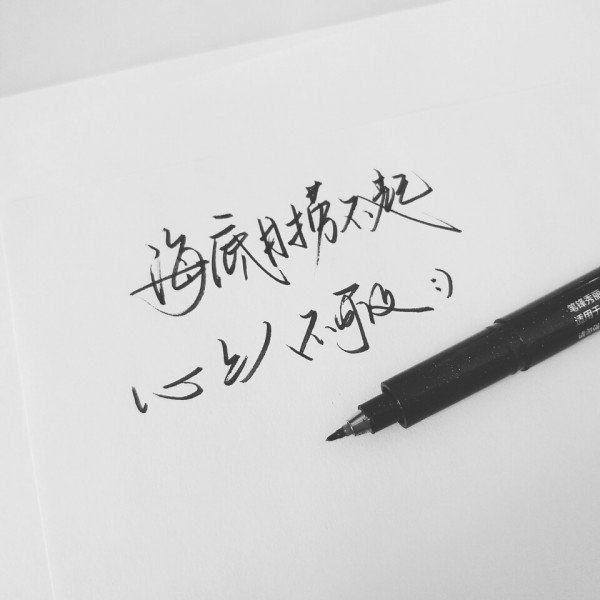 海底月捞不起
心上人不可及:)
笔锋秀丽
适用于